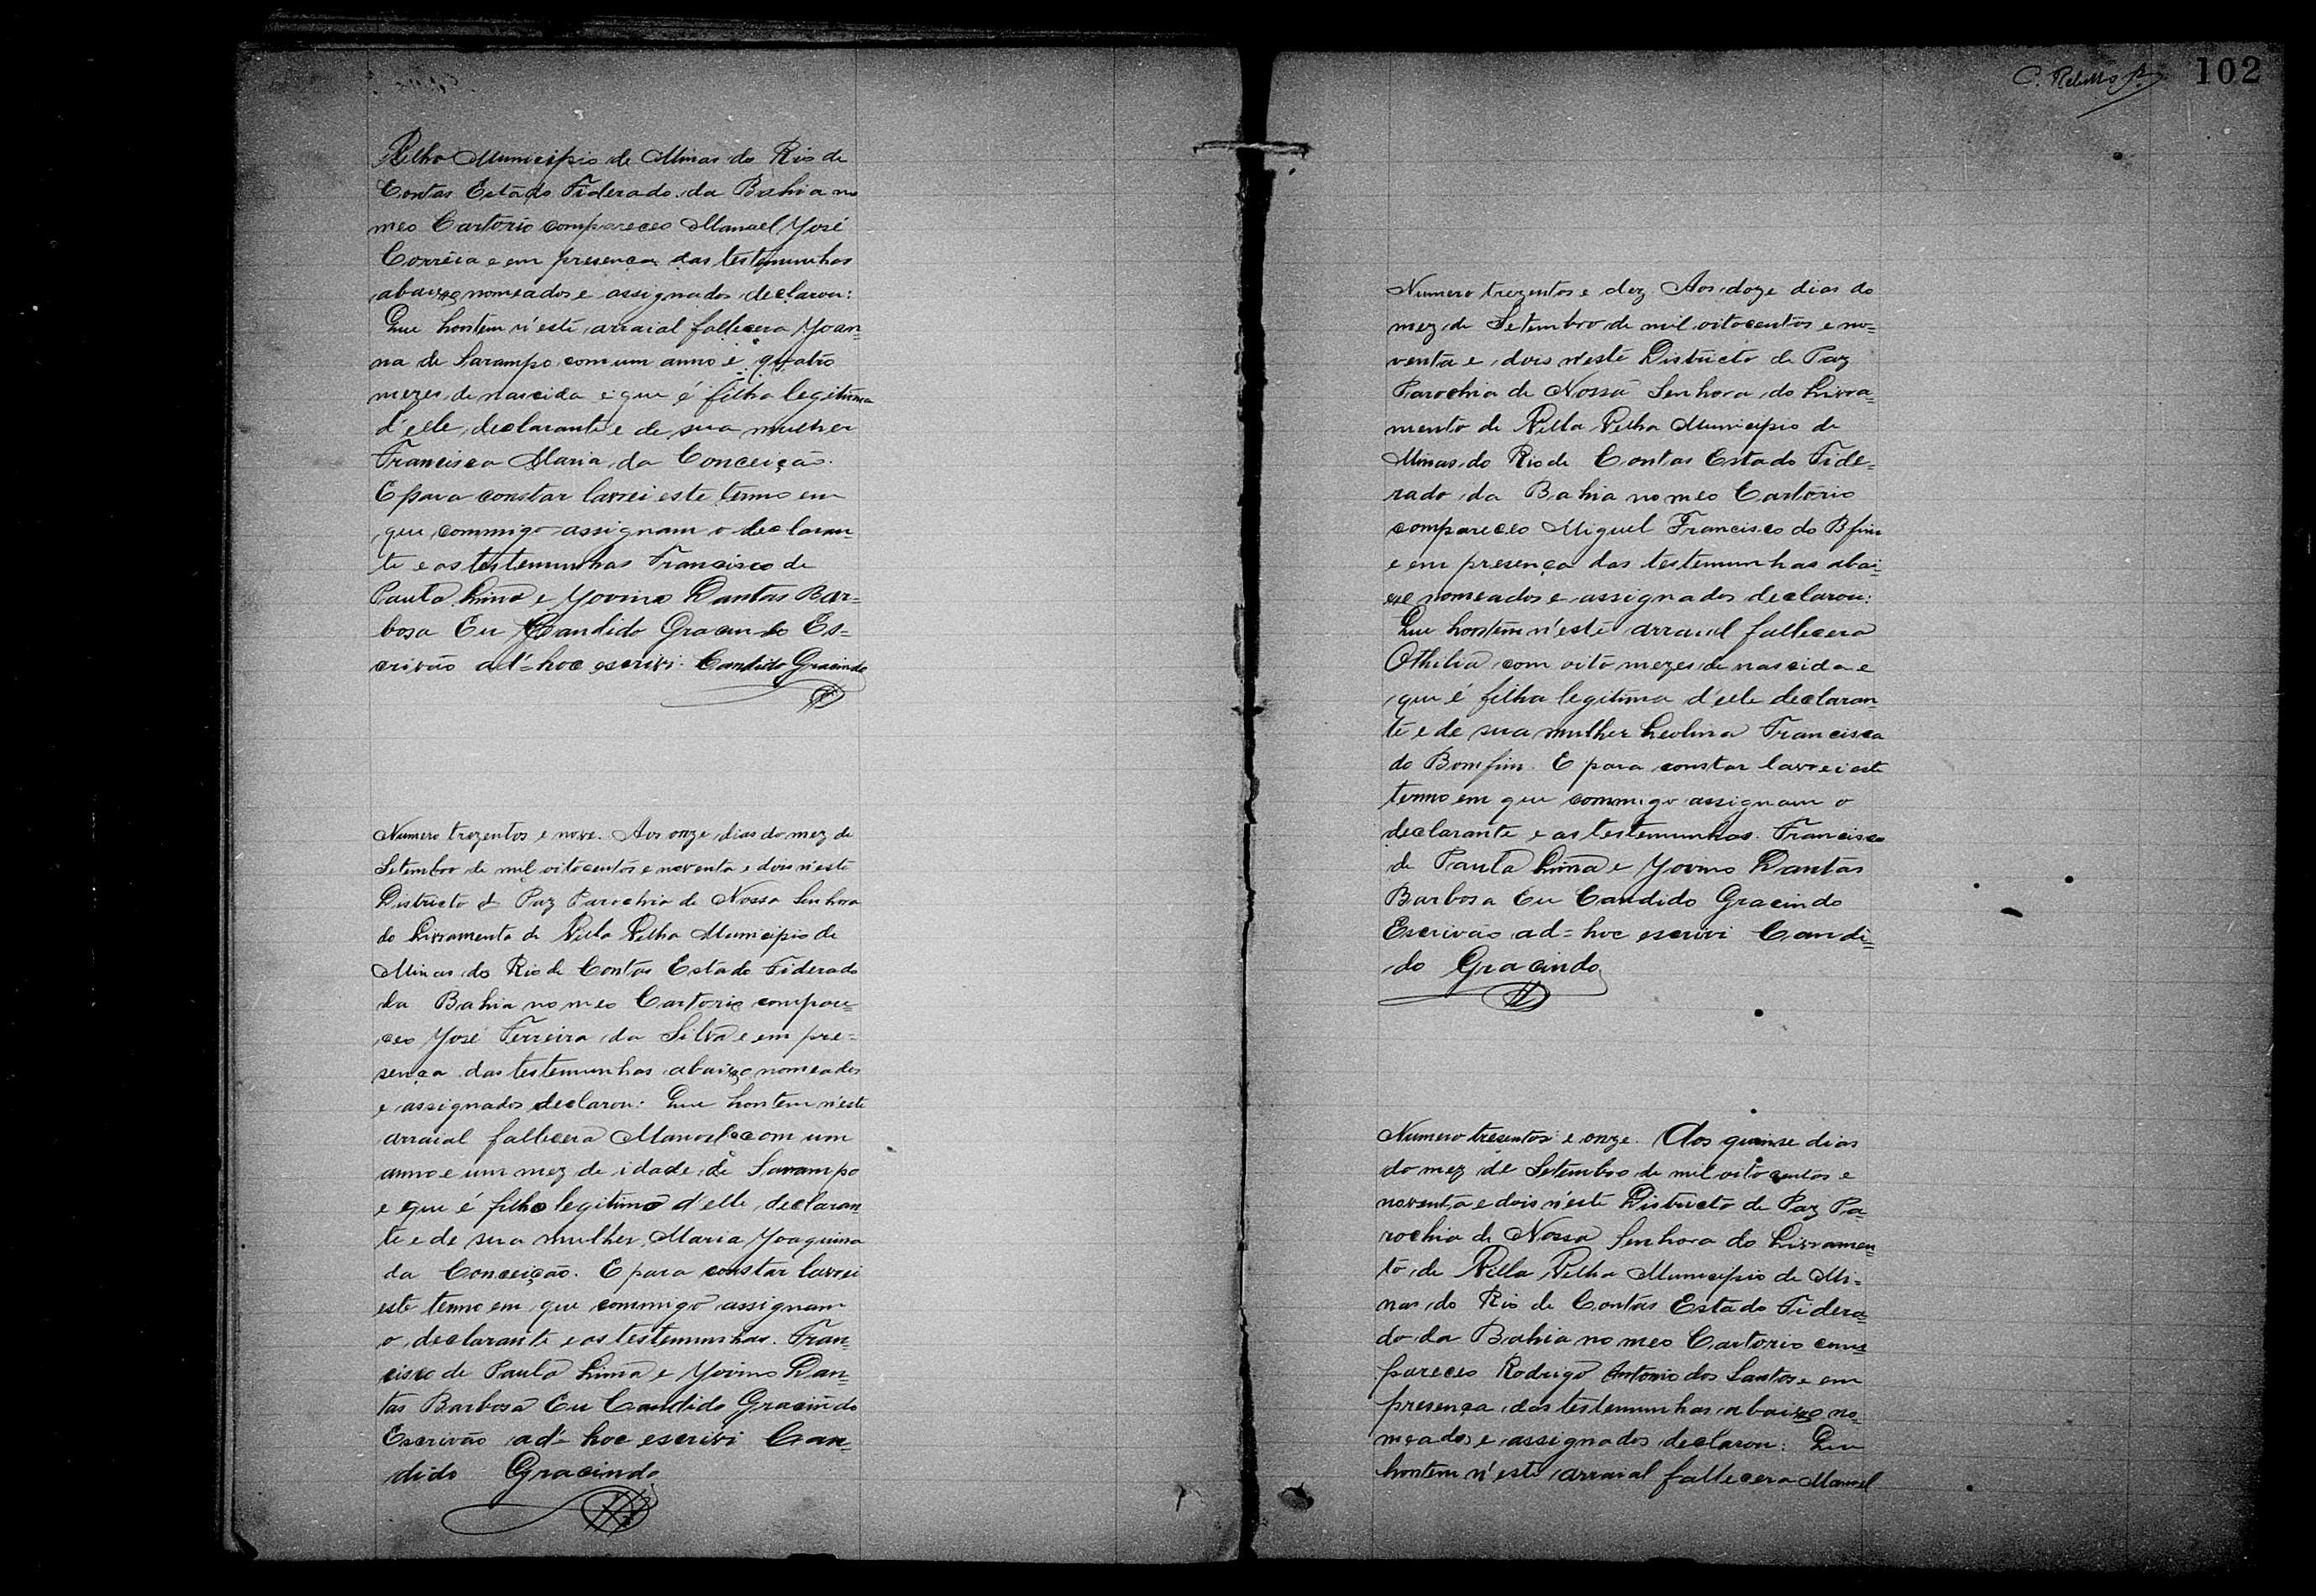 Velha Municipio de Minas do Rio de
Contas Estado Fiderado da Bahia no
meo Cartorio compareceo Manoel José
Corrêia e em presença das testemunhas
abaixo nomeados e assignados declarou:
Que hontem n'este arraial fallecera Joan-
na de Sarampo com um anno e quatro
mezes de nascida e que é filha legitima
d'elle declarante e de sua mulher
Francisca Maria da Conceição.
E para constar lavrei este termo em
que commigo assignam o declaran-
te e as testemunhas Francisco de
Paula Lima e Jovino Dantas Bar=
bosa Eu Candido Gracindo Es=
crivão ad=hoc escrivi. Candido Gracindo
Numero trezentos e nove. Aos onze dias do mez de
Setembro de mil oitocentos e noventa e dois n'este
Districto de Paz Parochia de Nossa Senhora
do Livramento de Villa Velha Municipio de
Minas do Rio de Contas Estado Fiderado
da Bahia no meo Cartorio compare-
ceo José Ferreira da Silva e em pre=
sença das testemunhas abaixo nomeados
e assignados declarou: Que hontem n'este
arraial fallecera Manoel com um
anno e um mez de idade de Sarampo
e que é filho legitimo d'elle declaran-
te e de sua mulher Maria Joaquina
da Conceição. E para constar lavrei
este termo em que commigo assignam
o declarante e as testemunhas. Fran-
cisco de Paula Lima e Jovino Dan-
tas Barbosa Eu Candido Gracindo
Escrivão ad= hoc escrivi Can-
dido Gracindo
102
Numero trezentos e dez. Aos doze dias do
mez de Setembro de mil oitocentos e no=
venta e dois n'este Districto de Paz
Parochia de Nossa Senhora do Livra-
mento de Villa Velha Municipio de
Minas do Rio de Contas Estado Fide-
rado da Bahia no meo Cartorio
compareceo Miguel Francisco do Bfim
e em presença das testemunhas abai-
xo nomeados e assignados declarou:
Que hontem n'este arraial fallecera
Othilia com oito mezes de nascida e
que é filha legitima d'elle declaran
te e de sua mulher Leolina Francisca
do Bomfim. E para constar lavrei este
termo em que commigo assignam o
declarante e as testemunhas. Francisco
de Paula Lima e Jovino Dantas
Barbosa Eu Candido Gracindo
Escrivão ad=hoc escrivi Candi=
do Gracindo
Numero tresentos e onze. Aos quinse dias
do mez de Setembro de mil oitocentos e
noventa e dois n'este Districto de Paz Pa-
rochia de Nossa Senhora do Livramen-
to de Villa Velha Municipio de Mi-
nas do Rio de Contas Estado Fidera-
do da Bahia no meo Cartorio com-
pareceo Rodrigo Antonio dos Santos e em
presença das testemunhas abaixo no-
meados e assignados declarou: Que
hontem n'este arraial fallecera Manoel